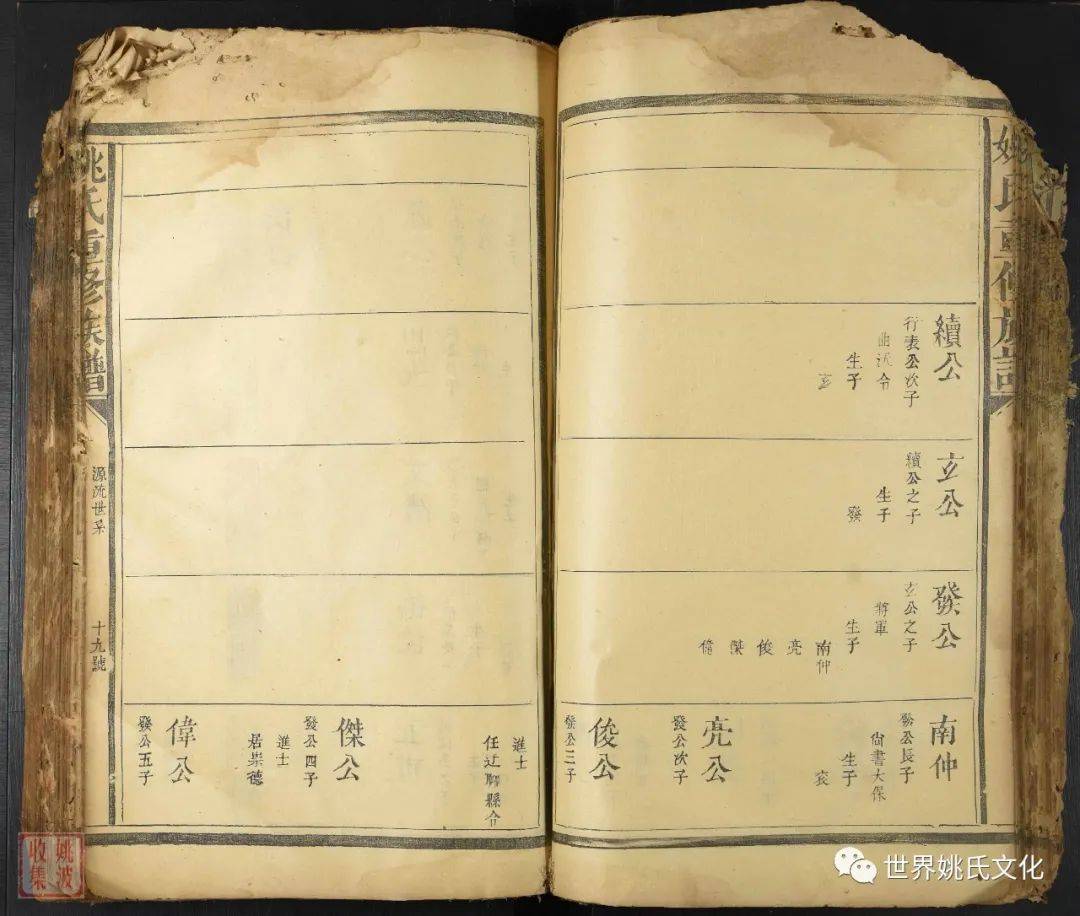 姚氏重修族譜
續公
行表公次子
曲沃令
生子
玄
玄公
續公之子
生子
發
發公
玄公之子
將軍
生子
南仲
亮
俊
傑
偉
南仲
發公長子
尚書太保
生子
袞
亮公
發公次子
俊公
發公三子
進士
任辽聊縣令
傑公
發公四子
進士
居崇德
偉公
發公五子
姚氏重修族譜
源流世系
十九號
姚波
收集
世界姚氏文化